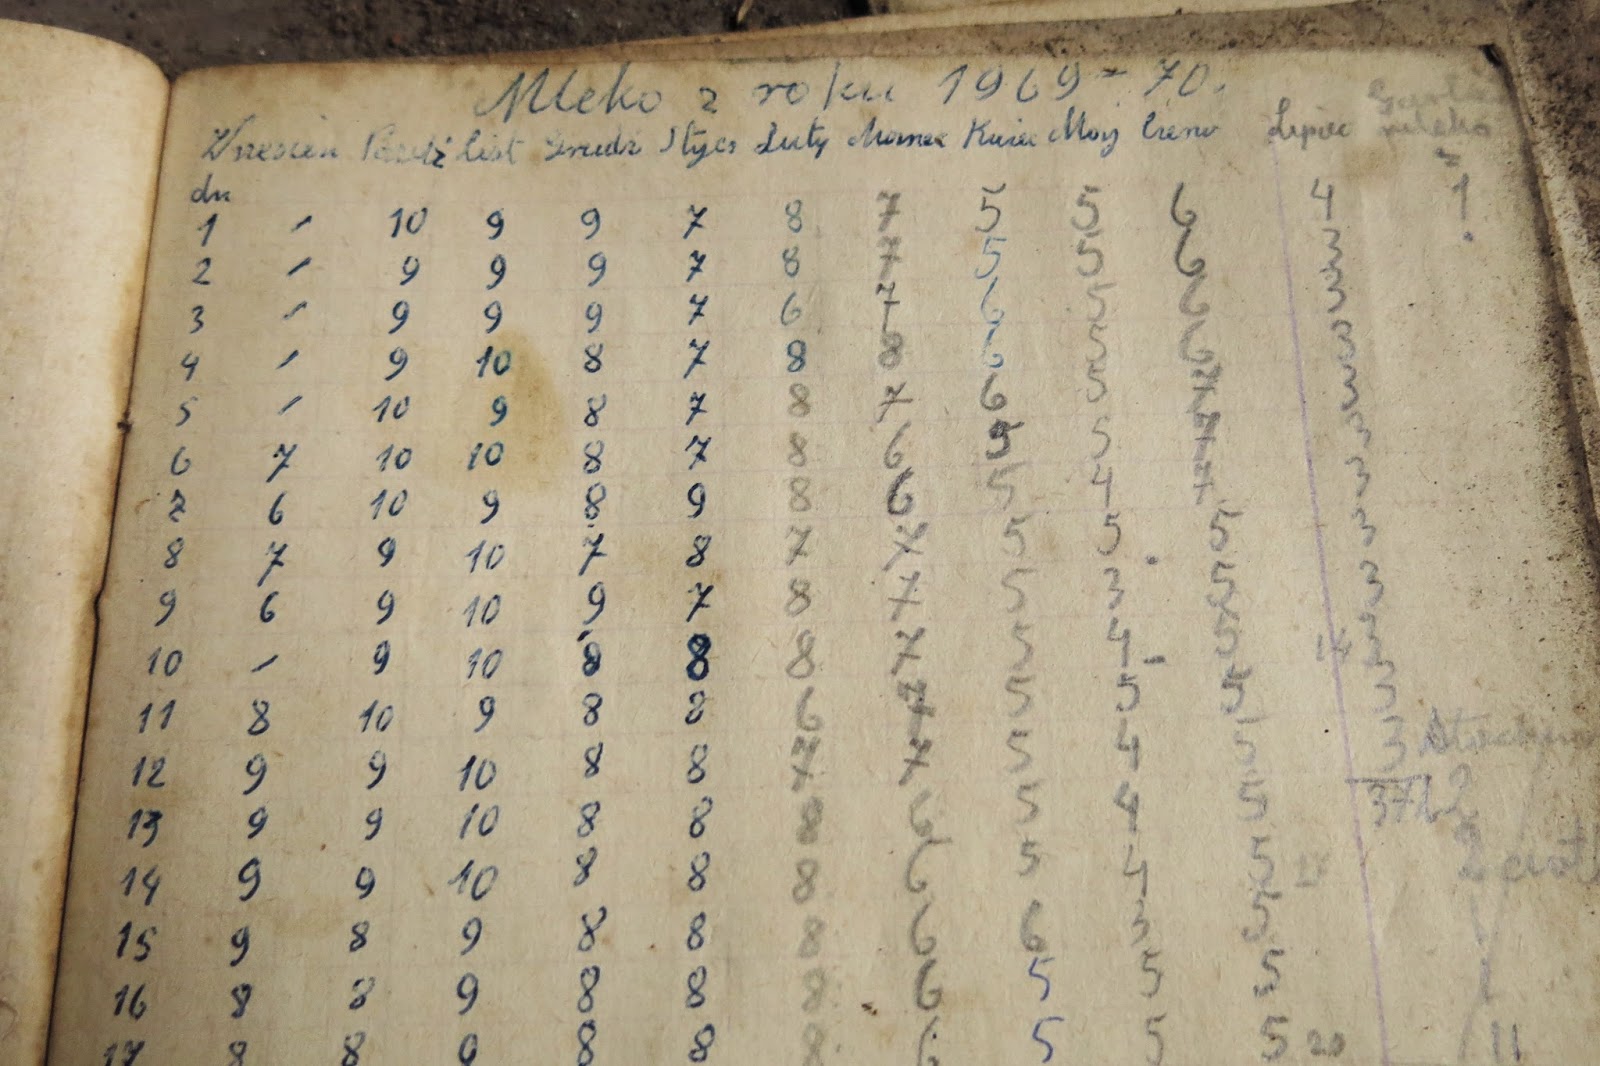 Mleko z roku 1969-70.
Wrzesień Paźdź List Grudź Stycz Luty Marzec Kwiec Maj Czerw Lipiec
mleko
dn
1 - 10 9 9 7 8 7 5 5 6 4 1
2 - 9 9 9 7 8 7 5 5 6 3
3 - 9 9 9 7 6 7 6 5 6 3
4 - 9 10 8 7 8 8 6 5 6 3
5 - 10 9 8 7 8 7 6 5 7 3
6 7 10 10 8 7 8 6 5 5 7 3
7 6 10 9 8 9 8 6 5 4 7 3
8 7 9 10 7 8 7 7 5 5 5 3
9 6 9 10 9 7 8 7 5 3 5 3
10 - 9 10 8 8 8 7 5 4 5 14 3
11 8 10 9 8 8 6 7 5 5 5 3
12 9 9 10 8 8 7 7 5 4 5 3
13 9 9 10 8 8 8 6 5 4 5 37
14 9 9 10 8 8 8 6 5 4 5
15 9 8 9 8 8 8 6 6 3 5
16 8 8 9 8 8 8 6 5 5 5
17 8 8 9 8 8 8 6 5 5 5 20 11